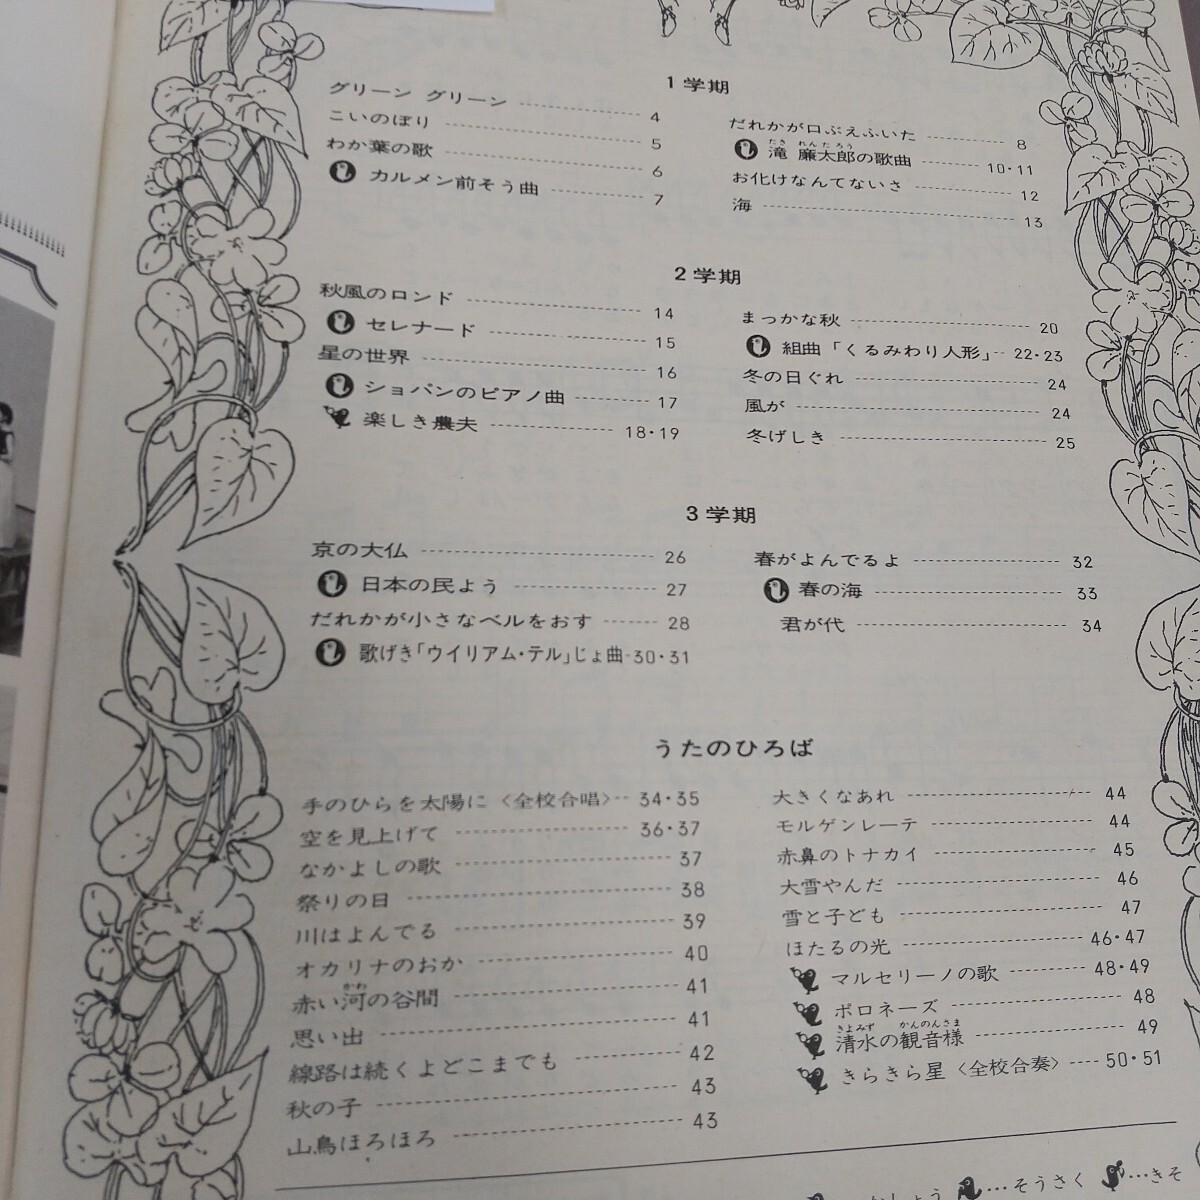 1学期
グリーン グリーン 4
こいのぼり 5
わか葉の歌 6
カルメン前そう曲 7
だれかが口ぶえふいた 8
滝 廉太郎の歌曲 10・11
たき れんたろう
お化けなんてないさ 12
海 13
2学期
秋風のロンド 14
セレナード 15
星の世界 16
ショパンのピアノ曲 17
楽しき農夫 18・19
まっかな秋 20
組曲「くるみわり人形」 22・23
冬の日ぐれ 24
風が 24
冬げしき 25
3学期
京の大仏 26
日本の民よう 27
だれかが小さなベルをおす 28
歌げき「ウイリアム・テル」じょ曲 30・31
春がよんでるよ 32
春の海 33
君が代 34
うたのひろば
手のひらを太陽に〈全校合唱〉 34・35
空を見上げて 36・37
なかよしの歌 37
祭りの日 38
川はよんでる 39
オカリナのおか 40
赤い河の谷間 41
かわ
思い出 41
線路は続くよどこまでも 42
秋の子 43
山鳥ほろほろ 43
大きくなあれ 44
モルゲンレーテ 44
赤鼻のトナカイ 45
大雪やんだ 46
雪と子ども 47
ほたるの光 46・47
マルセリーノの歌 48・49
ポロネーズ 48
清水の観音様 49
きよみず かんのんさま
きらきら星〈全校合奏〉 50・51
…そうさく …きそ